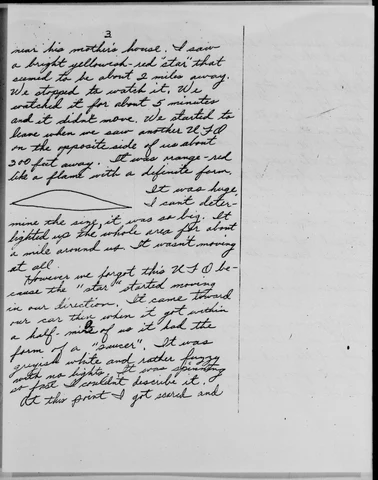 3
near his mother's house. I saw
a bright yellowish-red "star" that
seemed to be about 2 miles away.
We stopped to watch it. We
watched it for about 5 minutes
and it didnt move. We started to
leave when we saw another UFO
on the opposite side of us about
200 feet away. It was orange-red
like a flame with a definite form.
It was huge
I cant deter-
mine the size, it was so big. It
lighted up the whole area for about
a mile around us. It wasn't moving
at all.
However we forgot this UFO be-
cause the "star" started moving
in our direction. It came toward
our car then when it got within
a half-mile of us it had the
form of a "saucer". It was
greyish white and rather fuzzy
with no lights. It was spinning
so fast I couldn't describe it.
At this point I got scared and